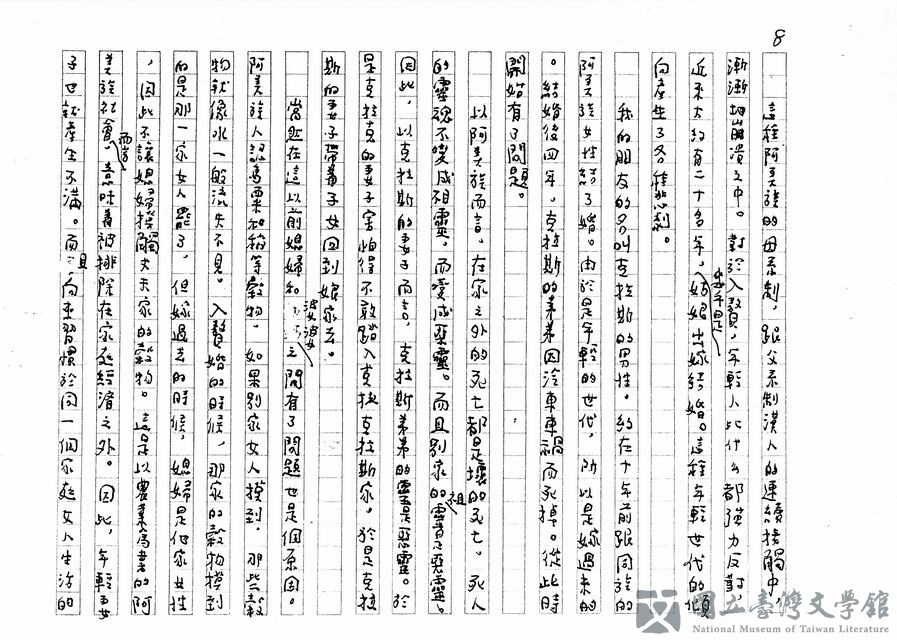 8
這種阿美族的母系制，跟父系制漢人的連續接觸中，
漸漸地崩潰之中。對於入贅，年輕人比什么都強力反對，
近來大約有二十多年，姑娘出嫁結婚。這種年輕世代的傾
向產生了各種悲劇。
我的朋友的名叫克拉斯的男性。約在十年前跟同族的
阿美族女性結了婚。由於是年輕的世代，所以是嫁過來的
。結婚後四年，克拉斯的弟弟因泠東車禍而死掉。從此時
開始有了問題。
以阿美族而言，在家之外的死亡都是壞的死亡。死人
的靈魂不變成祖靈。而變成惡靈。而且別家的祖靈是惡靈。
因此，以克拉斯的妻子而言，克拉斯弟弟的靈是惡靈。於
是克拉克的妻子害怕得不敢踏入克拉克拉斯家。於是克拉
斯的妻子帶着子女回到娘家去。
當然在這以前媳婦和婆婆之間有了問題也是個原因。
阿美族人認為粟和稻等穀物，如果別家女人摸到，那些穀
物就像水一般流失不見。入贅婚的時候，那家的穀物摸到
的是那一家女人罷了，但嫁過去的時候，媳婦是他家女性
，因此不讓媳婦接觸丈夫家的穀物。這是以農業為害的阿
美族社會，而言意味着被排除在家庭經濟之外。因此，年輕妻
子也就產生不滿。而且向來習慣於同一個家庭女人生活的
國立臺灣文學館
National Museum of Taiwan Literature